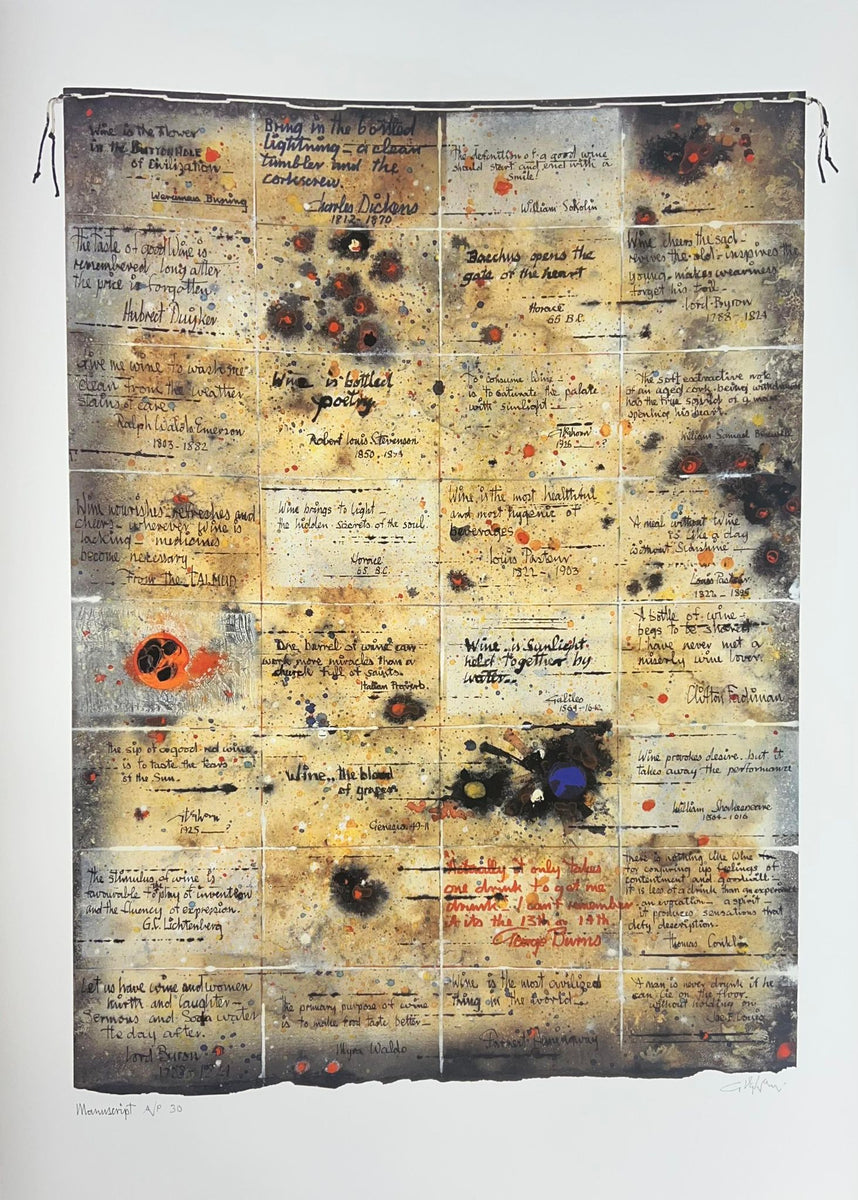 Wine is the flower
in the BUTTON HOLE
of Civilization
Werumeus Buning
Bring in the bottled
lightning - a clean
tumbler and the
corkscrew.
Charles Dickens
1812 - 1870
The definition of a good wine
should start and end with a
smile!
William Sokolin
The taste of good wine is
remembered long after
the price is forgotten
Hubrect Duijker
Bacchus opens the
gate of the heart
Horace
65 B.C.
Wine cheers the sad -
revives the old - inspires the
young - makes weariness
forget his toil -
Lord Byron
1788 - 1824
Give me wine to wash me
clean from the weather
stains of care
Ralph Waldo Emerson
1803 - 1882
Wine is bottled
poetry
Robert Louis Stevenson
1850 - 1894
To consume wine -
is to saturate the palate
with sunlight -
1925
The soft extractive note
of an aged cork being withdrawn
has the true sound of a man
opening his heart.
William Samuel
Wine nourishes - refreshes and
cheers - wherever wine is
lacking - medicines
become necessary
From the TALMUD
Wine brings to light -
the hidden secrets of the soul
Horace
65 B.C.
Wine is the most healthful
and most hygenic of
beverages
Louis Pasteur
1822 - 1903
A meal without Wine
is like a day
without Sunshine -
Louis Pasteur
1822 - 1895
One barrel of wine can
work more miracles than a
church full of saints.
Italian Proverb.
Wine is Sunlight
held together by
water -
Galileo
1564 - 1642
A bottle of wine -
begs to be shared
I have never met a
miserly wine lover.
Clifton Fadiman
The sip of a good red wine
is to taste the tears
of the Sun.
1925 -
Wine.. the blood
of grapes
Genesis 49-11
Wine provokes desire. but it
takes away the performance
William Shakespeare
1564 - 1616
The stimulus of wine is
favourable to play of invention
and the fluency of expression.
G.C. Lichtenberg
Actually it only takes
one drink to get me
drunk. I can't remember
if its the 13th or 14th
George Burns
There is nothing like wine
for conjuring up feelings of
contentment and goodwill -
it is less of a drink than an experience
an evocation - a spirit -
it produces sensations that
defy description.
Thomas Conklin
Let us have wine and women
mirth and laughter -
Sermons and Soda water
the day after.
Lord Byron
1788 - 1824
The primary purpose of wine
is to make food taste better -
Myra Waldo
Wine is the most civilized
thing in the world -
Ernest Hemingway
A man is never drunk if he
can lie on the floor
without holding on
Joe E. Lewis
Manuscript A/P 30